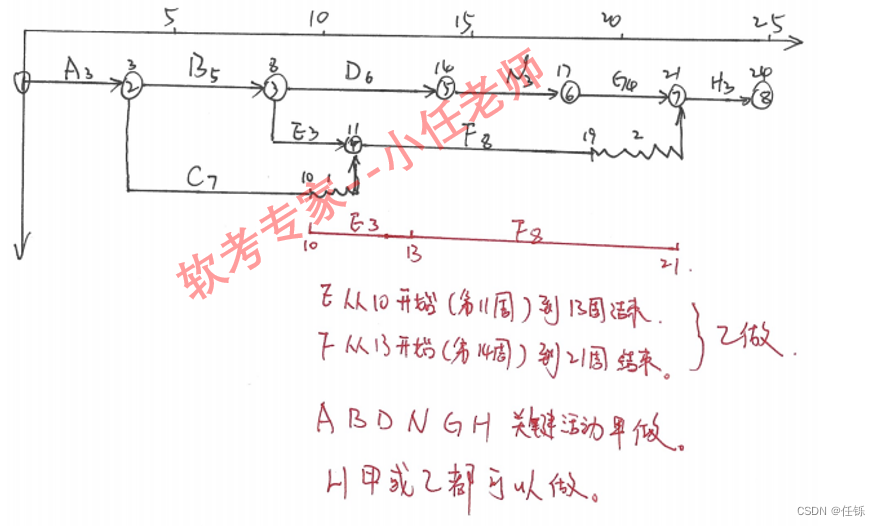 5 10 15 20 25
A3 3 B5 8 D6 14 N3 17 G4 21 H3 24
1 2 3 5 6 7 8
E3 11 4 F8 19 2
C7 10 1
E3 F8
10 13 21
E从10开始(第11周)到13周结束.
F从13开始(第14周)到21周结束。
}乙做.
A B D N G H 关键活动甲做。
H甲或乙都可以做。
软考专家---小任老师
CSDN @任铄